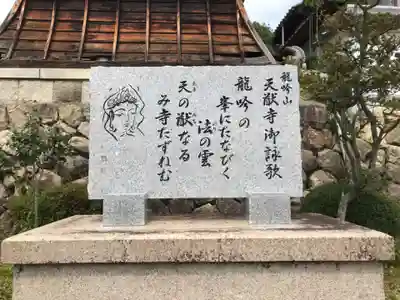 龍吟山
天猷寺御詠歌
龍吟の
峯にたなびく
法の雲
天の猷なる
み寺たずねむ